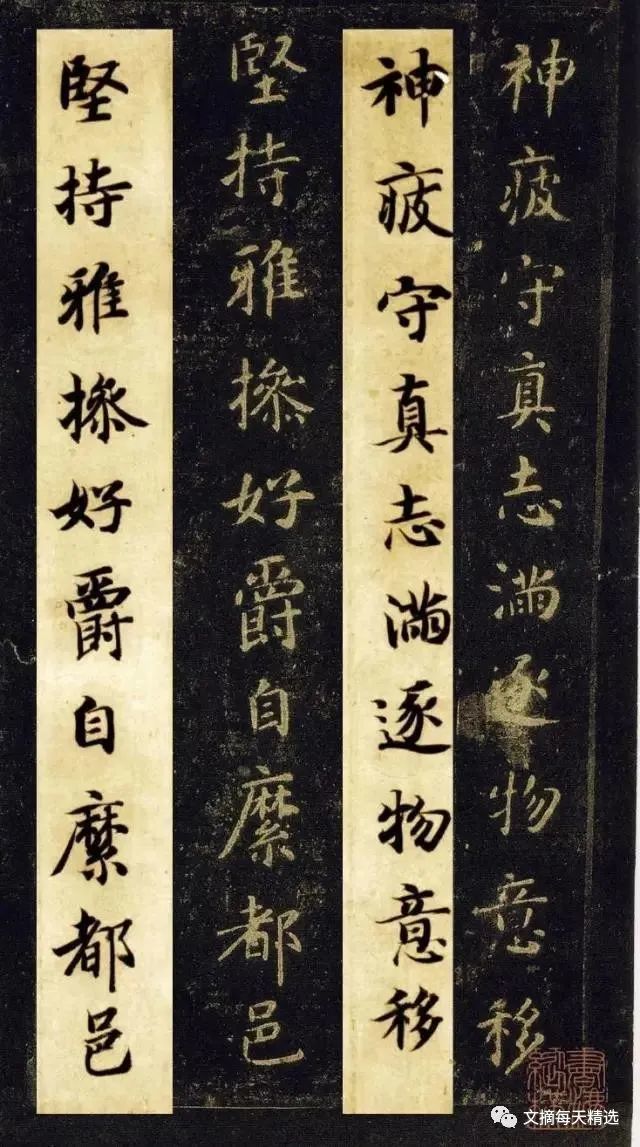 神疲守真志滿逐物意移
神疲守真志滿逐物意移
堅持雅操好爵自縻都邑
堅持雅操好爵自縻都邑
文摘每天精选